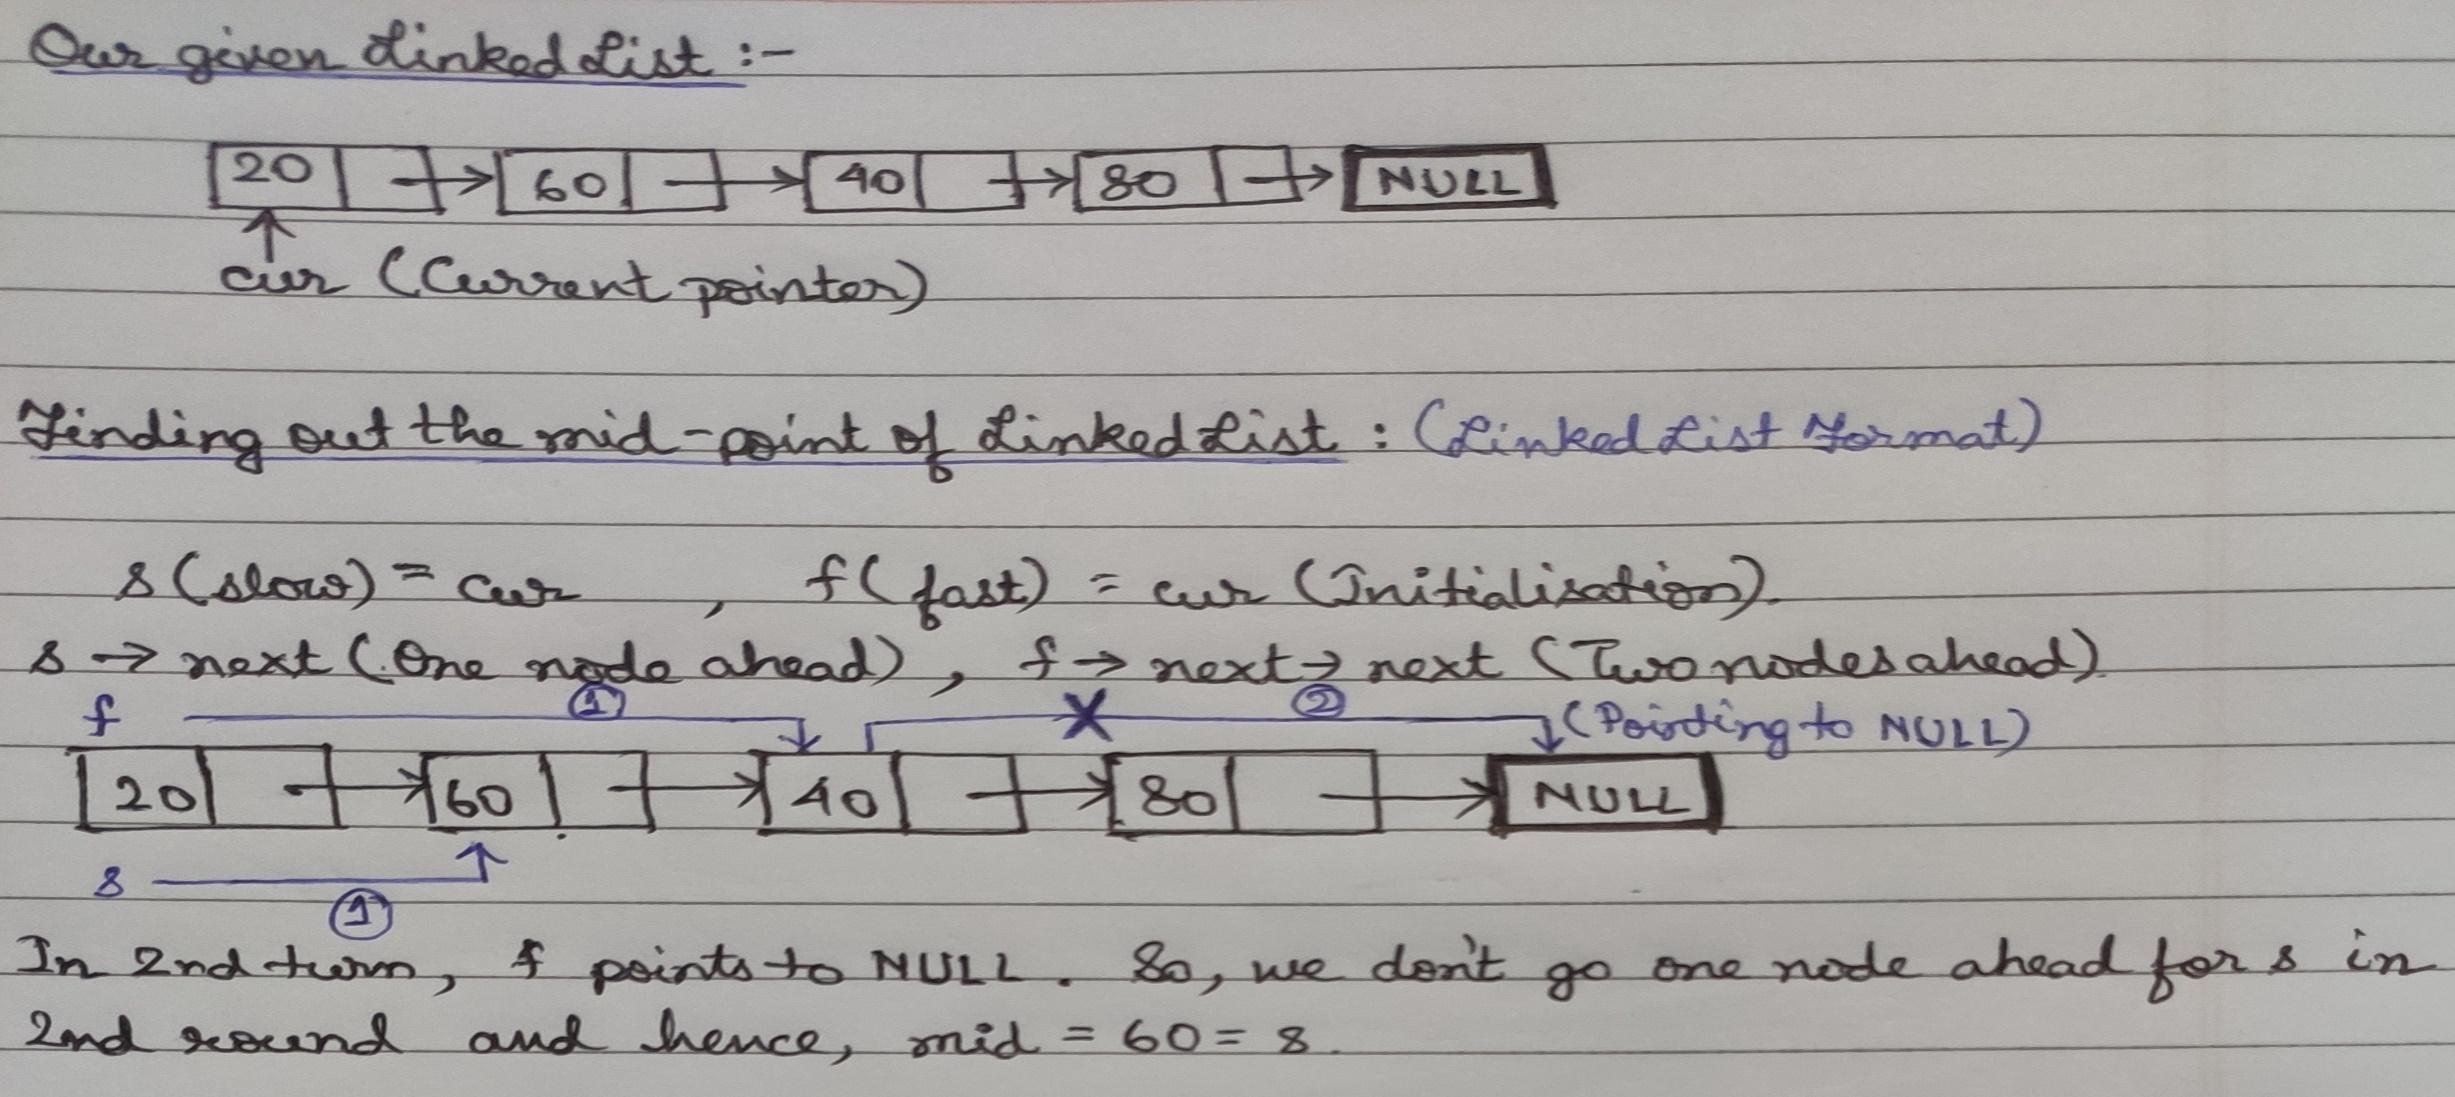 Our given Linked List :-
20 → 60 → 40 → 80 → NULL
cur (Current pointer)
Finding out the mid-point of Linked List : (Linked List Format)
s (slow) = cur , f (fast) = cur (Initialisation).
s → next (One node ahead), f → next → next (Two nodes ahead).
f ① X ② (Pointing to NULL)
20 → 60 → 40 → 80 → NULL
s ①
In 2nd turn, f points to NULL. So, we don't go one node ahead for s in
2nd round and hence, mid = 60 = s.